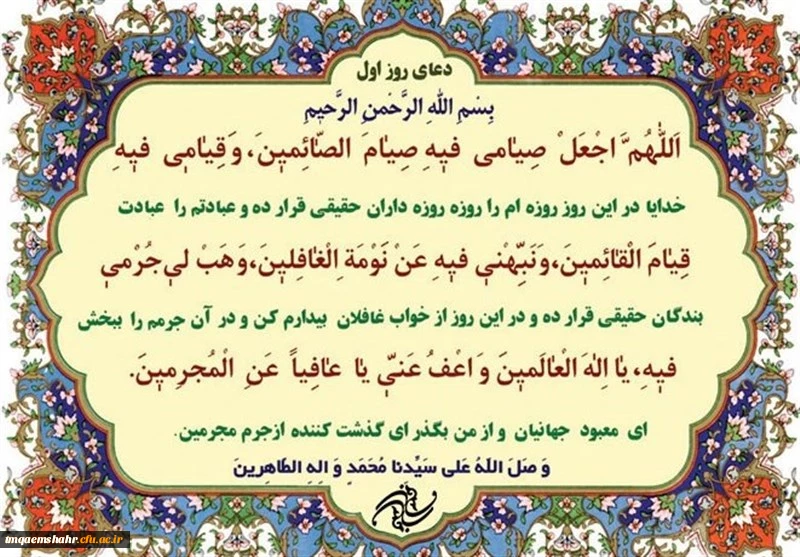 دعای روز اول
بِسْمِ اللهِ الرَّحْمنِ الرَّحیمِ
اَللّٰهُمَّ اجْعَلْ صِیٰامی فیٖهِ صِیٰامَ الصّٰائِمیٖنَ، وَقِیٰامیٖ فیٖهِ
خدایا در این روز روزه ام را روزه روزه داران حقیقی قرار ده و عبادتم را عبادت
قِیٰامَ الْقٰائِمیٖنَ، وَنَبِّهْنیٖ فیٖهِ عَنْ نَوْمَةِ الْغٰافِلیٖنَ، وَهَبْ لیٖ جُرْمیٖ
بندگان حقیقی قرار ده و در این روز از خواب غافلان بیدارم کن و در آن جرمم را ببخش
فیٖهِ، یٰا اِلٰهَ الْعٰالَمیٖنَ وَ اعْفُ عَنّیٖ یٰا عٰافِیاً عَنِ الْمُجرِمیٖنَ.
ای معبود جهانیان و از من بگذر ای گذشت کننده ازجرم مجرمین.
وَ صَلَ اللهُ عَلی سَیِّدنا مُحَمَدٍ وَ الِهِ الطّاهِرینَ
tmqaemshahr.cfu.ac.ir